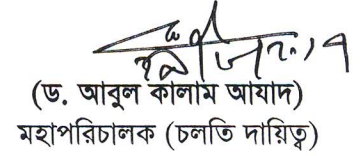 (ড. আবুল কালাম আযাদ)
মহাপরিচালক (চলতি দায়িত্ব)